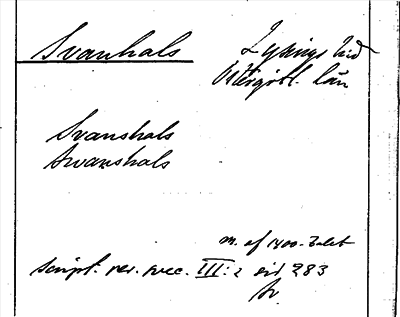 Svanhals
Lysings hd
Östergötl. län
Svanshals
Swanshals
m. af 1400-talet
Script. rer. svec. III:2 sid 283